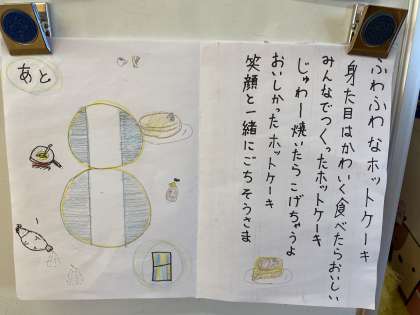 ふわふわなホットケーキ
身た目はかわいく食べたらおいしい
みんなでつくったホットケーキ
じゅわー焼いたらこげちゃうよ
おいしかったホットケーキ
笑顔と一緒にごちそうさま
あと